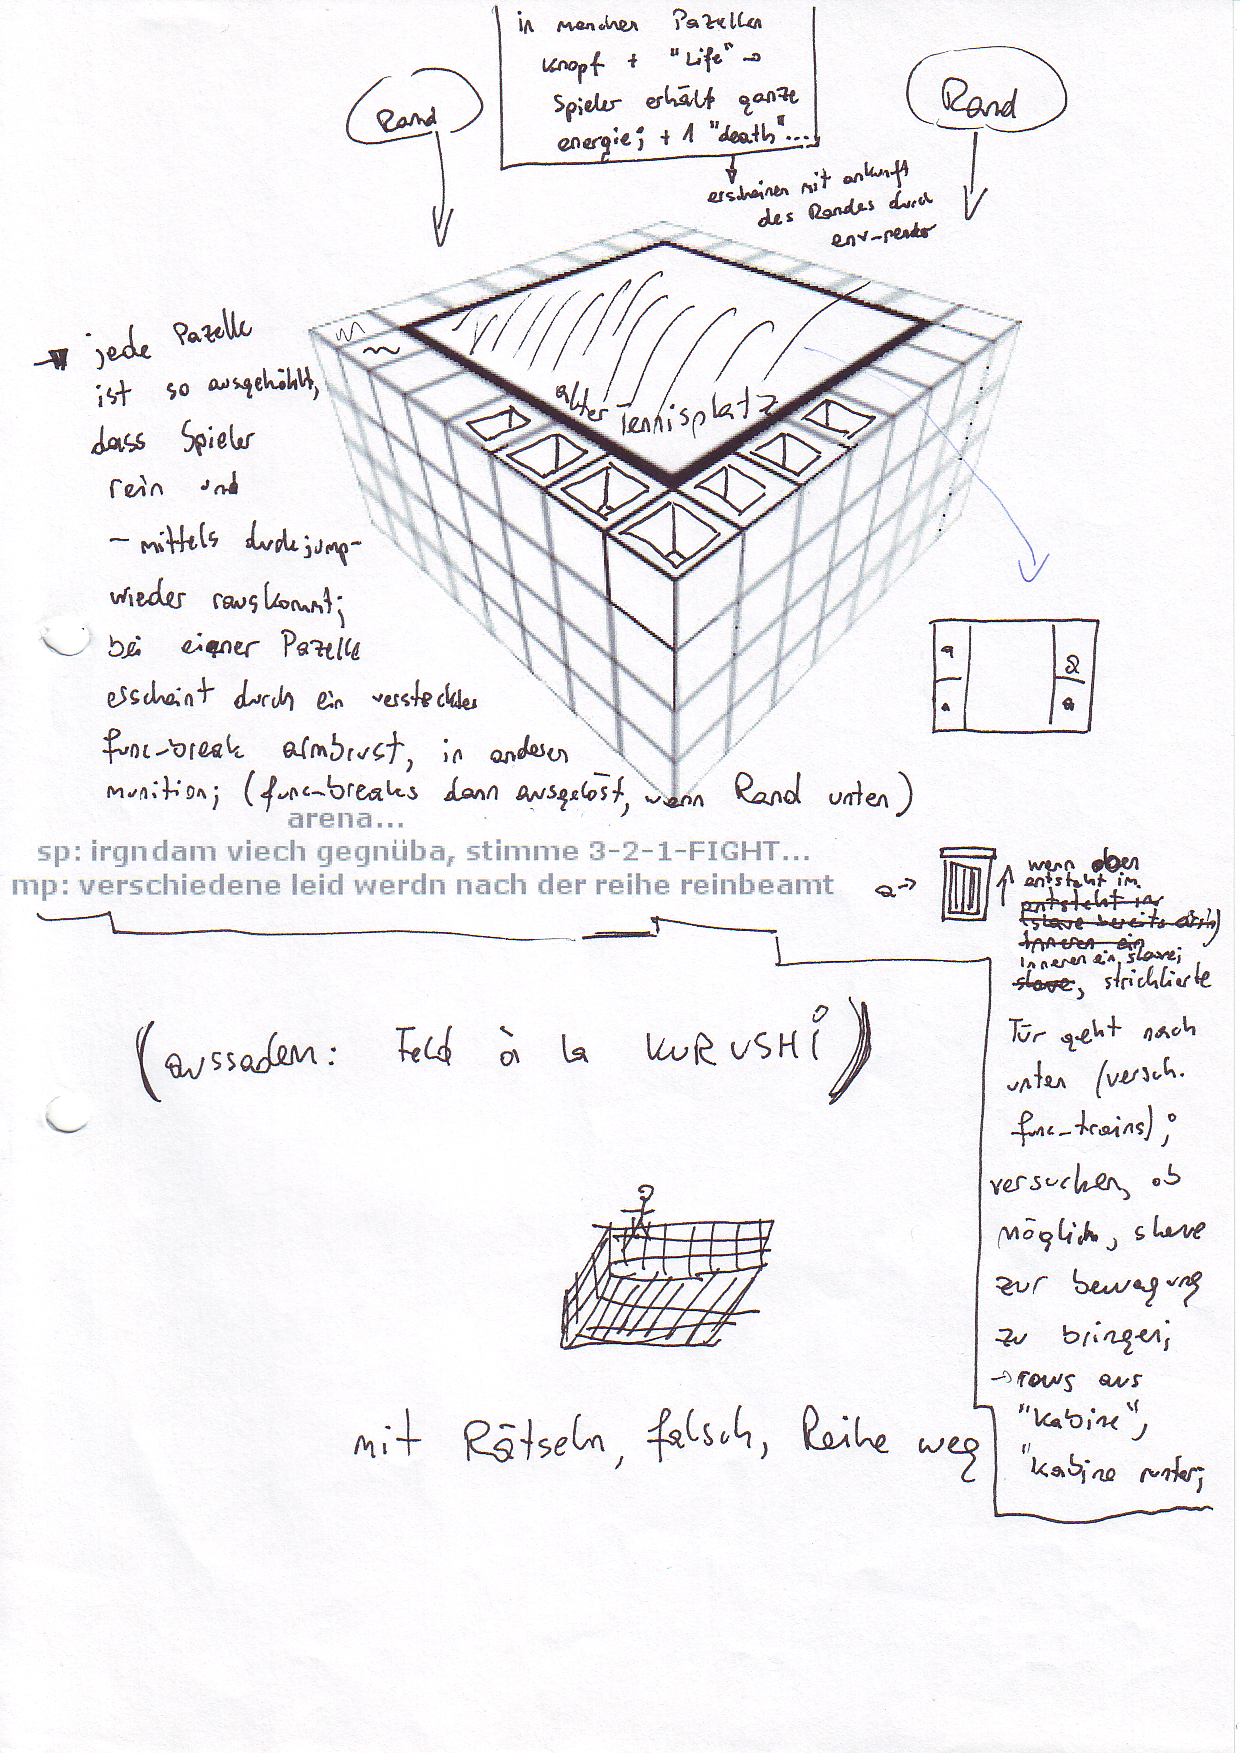 in manchen Pazellen
Knopf + "Life" →
Spieler erhält ganze
energie; + 1 "death"...
Rand
Rand
erscheinen mit ankunft
des Randes durch
env-render
→ jede Pazelle
ist so ausgehöhlt,
dass Spieler
rein und
- mittels duckjump-
wieder rauskommt;
bei eigner Pazelle
esscheint durch ein verstecktes
func-break armbrust, in anderen
munition; (func-breaks dann ausgelöst, wenn Rand unten)
alter Tennisplatz
a
a
a
a
arena...
sp: irgndam viech gegnüba, stimme 3-2-1-FIGHT...
mp: verschiedene leid werdn nach der reihe reinbeamt
a →
wenn oben
entsteht im
entsteht im
(slave bereits drin)
Inneren ein
inneren ein slave;
slave, strichlierte
Tür geht nach
unten (versch.
func-trains);
versuchen, ob
möglich, slave
zur bewegung
zu bringen;
→ raus aus
"Kabine",
"Kabine runter;
(aussadem: Feld à la KURUSHI)
mit Rätseln, falsch, Reihe weg